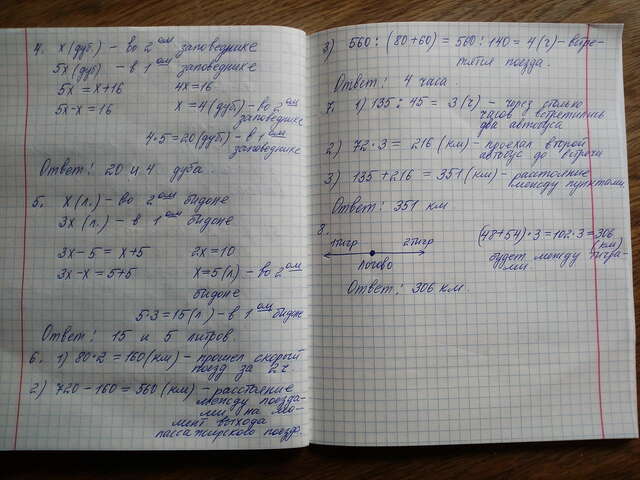 4. х (дуб.) – во 2ом заповеднике
5х (дуб) – в 1ом заповеднике
5х = х+16 4х=16
5х-х=16 х=4(дуб) – во 2ом
заповеднике
4·5=20(дуб) – в 1ом
заповеднике
Ответ: 20 и 4 дуба.
5. х(л.) – во 2ом бидоне
3х(л.) – в 1ом бидоне
3х-5=х+5 2х=10
3х-х=5+5 х=5(л) – во 2ом
бидоне
5·3=15(л) – в 1ом бидоне
Ответ: 15 и 5 литров.
6. 1) 80·2=160(км) – прошел скорый
поезд за 2ч.
2) 720-160=560(км) – расстояние
между поезда-
ми на мо-
мент выхода
пассажирского поезда.
3) 560:(80+60)=560:140=4(ч) – встре-
тятся поезда.
Ответ: 4 часа.
7. 1) 135:45=3(ч) – через сколько
часов встретились
два автобуса
2) 72·3=216(км) – проехал второй
автобус до встречи
3) 135+216=351(км) – расстояние
между пунктами.
Ответ: 351 км
8.
1тигр 2тигр
логово
(48+54)·3=102·3=306
(км)
будет между тигра-
ми
Ответ: 306 км.